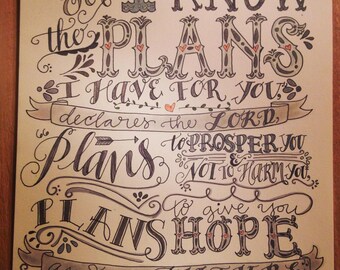 KNOW
the PLANS
I HAVE FOR YOU,
declares the LORD,
"Plans
to PROSPER you
& NOT to HARM you,
PLANS
to give you
HOPE